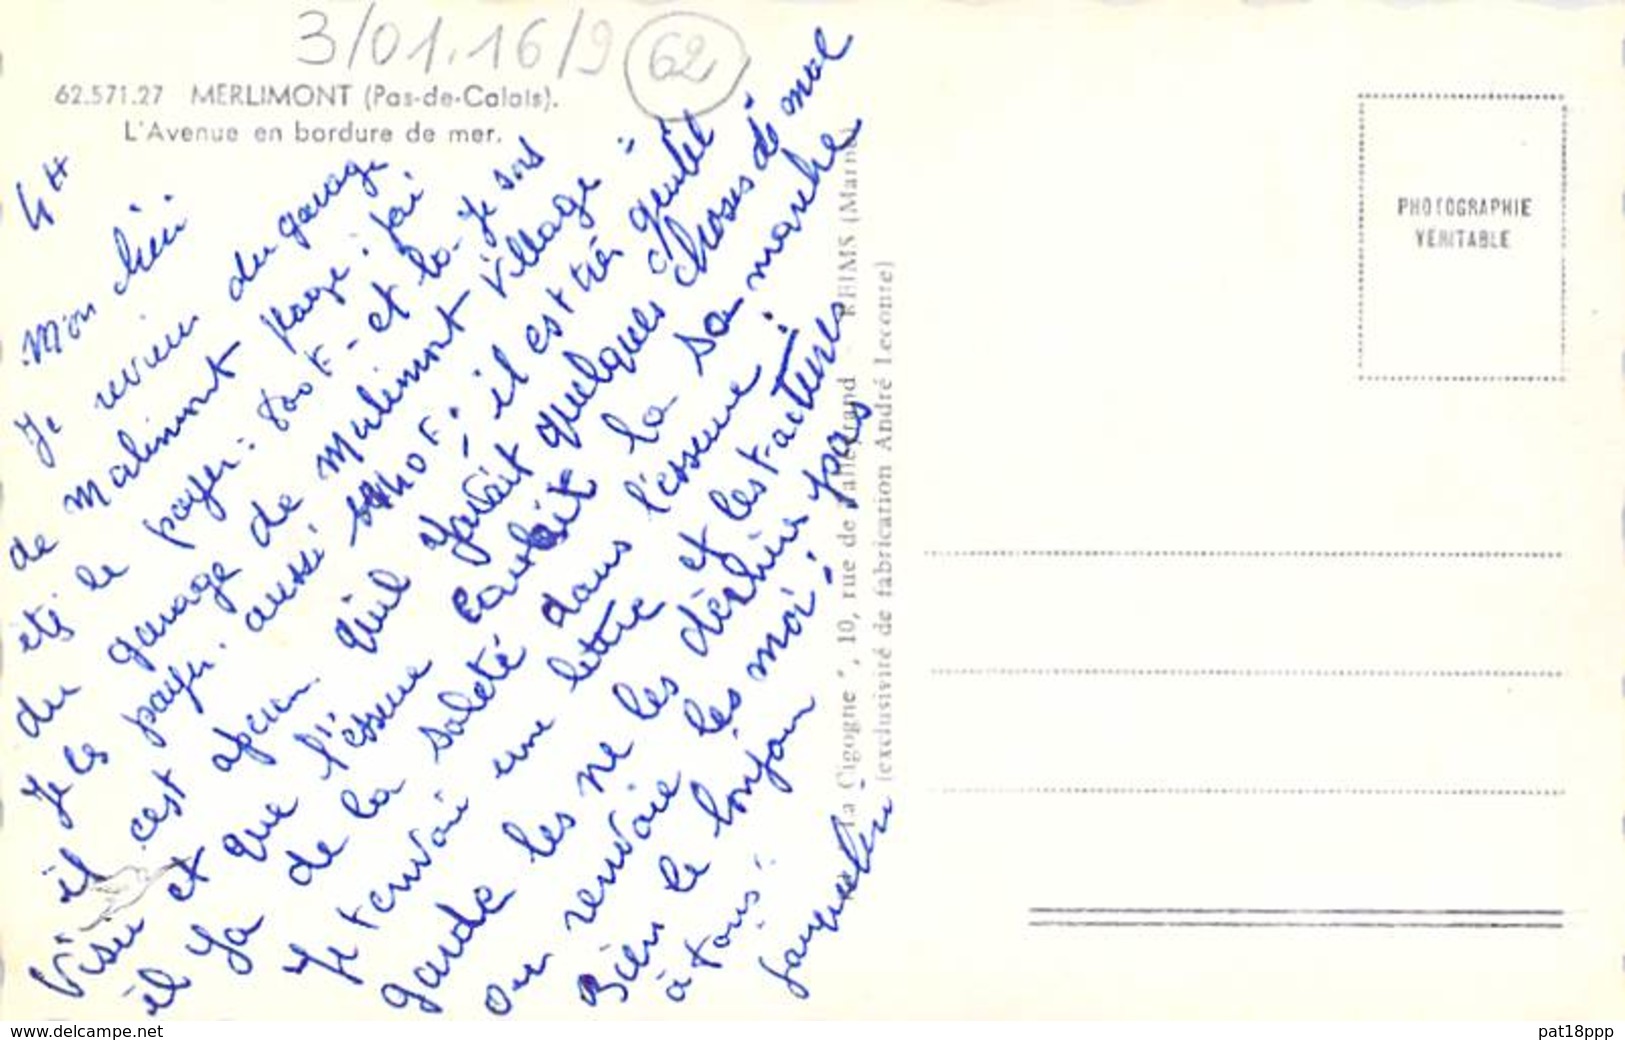 3/01.16/9 62
62.571.27 MERLIMONT (Pas-de-Calais).
L'Avenue en bordure de mer.
4H
Mon chéri
Je reviens du garage
de Malimont plage : j'ai
étés le payer : 800 F - et la - Je sors
du garage de Malimont village =
Je les payer aussi F ; il est très gentil
il cest aperçu quil yavait quelques choses de mal
visée et que l'éssene coulait la sa marche
il ya de la saleté dans l'éssene !
Je tenvoie une lettre et les factures
garde les ne les déchire pas
ou renvoie les moi !
Bien le bonjour
à tous :
Jacqueline
La Cigogne", 10, rue de Talleyrand - REIMS (Marne)
(exclusivité de fabrication André Leconte)
PHOTOGRAPHIE
VÉRITABLE
www.delcampe.net
pat18ppp